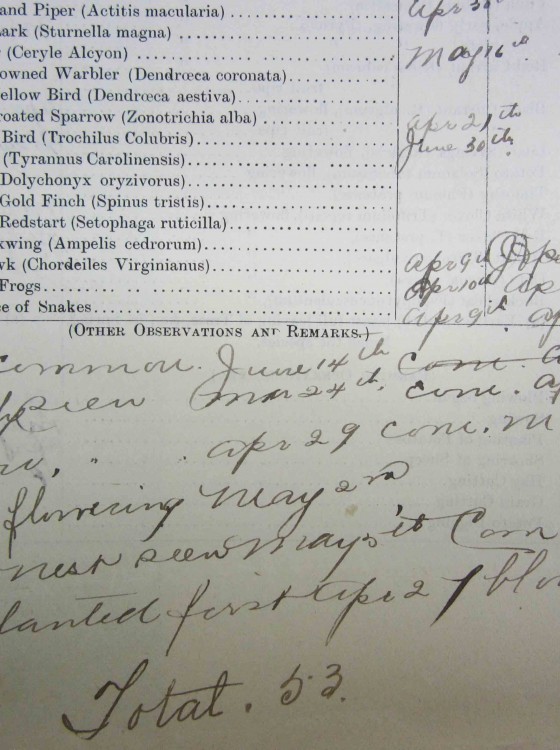 and Piper (Actitis macularia) apr 30
ark (Sturnella magna)
(Ceryle Alcyon) May 16th
owned Warbler (Dendrœca coronata)
ellow Bird (Dendrœca aestiva)
roated Sparrow (Zonotrichia alba) apr 21th
Bird (Trochilus Colubris) June 30th
(Tyrannus Carolinensis)
Dolychonyx oryzivorus)
Gold Finch (Spinus tristis)
Redstart (Setophaga ruticilla)
xwing (Ampelis cedrorum)
vk (Chordeiles Virginianus) apr 9th
Frogs apr 10th ap
ce of Snakes apr 9th ap
(Other Observations and Remarks.)
common. June 14th com.
seen mar 24th, com. a
" apr 29 com. m
flowering May 2nd
nest seen May 5th Com
lanted first apr 27 blo
Total. 53.